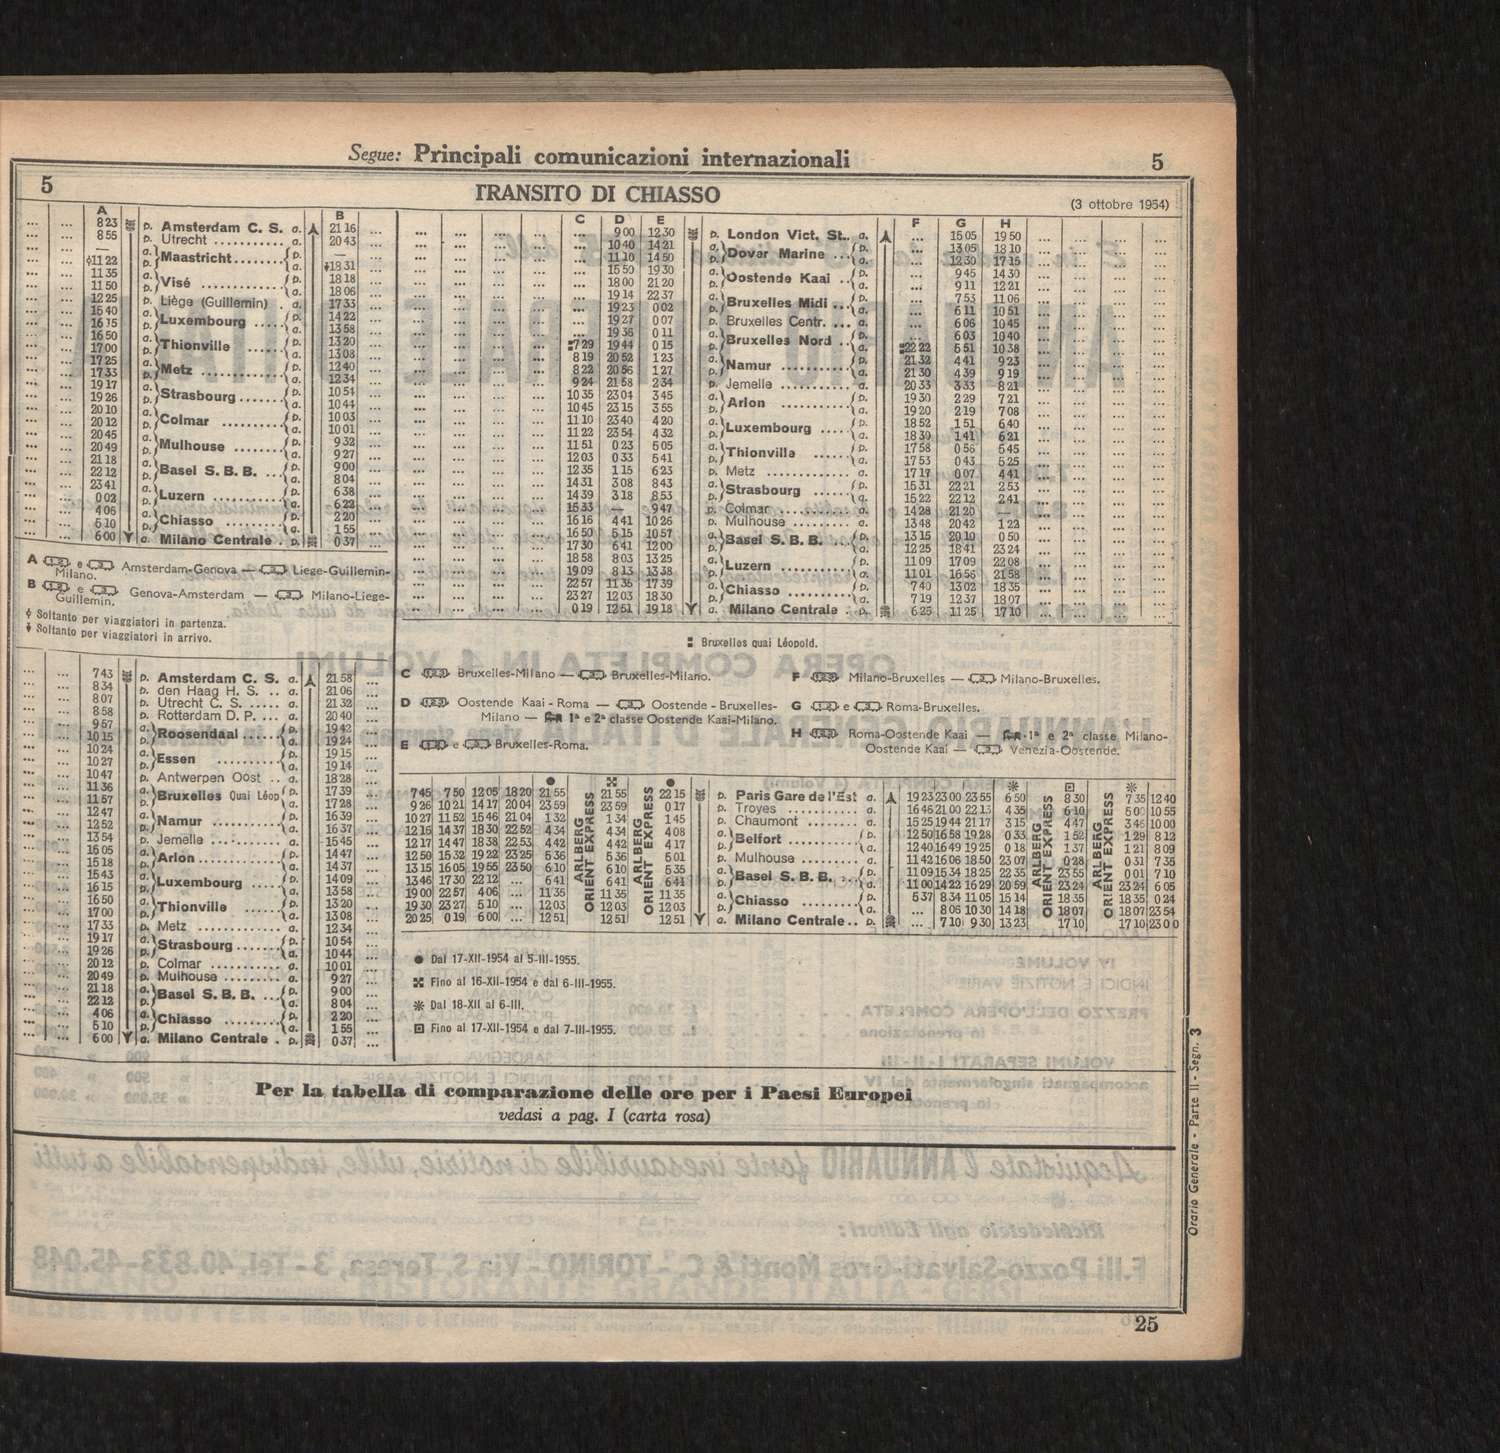 Segue: Principali comunicazioni internazionali 5
5 TRANSITO DI CHIASSO (3 ottobre 1954)
A B
8 23 p. Amsterdam C. S. a. 21 16
8 55 p. Utrecht a. 20 43
— a. Maastricht p. —
11 22 p. a. 18 31
11 35 a. Visé p. 18 18
11 50 p. a. 18 06
12 25 p. Liège (Guillemin) a. 17 33
15 40 a. Luxembourg p. 14 22
16 15 p. a. 13 58
16 50 a. Thionville p. 13 20
17 00 p. a. 13 08
17 25 a. Metz p. 12 40
17 33 p. a. 12 34
19 17 a. Strasbourg p. 10 54
19 26 p. a. 10 44
20 10 a. Colmar p. 10 03
20 12 p. a. 10 01
20 45 a. Mulhouse p. 9 32
20 49 p. a. 9 27
21 18 a. Basel S. B. B. p. 9 00
22 12 p. a. 8 04
23 41 a. Luzern p. 6 38
0 02 p. a. 6 22
4 06 a. Chiasso p. 2 20
5 10 p. a. 1 55
6 00 a. Milano Centrale p. 0 37
A e Amsterdam-Genova — Liege-Guillemin-Milano.
B e Genova-Amsterdam — Milano-Liege-Guillemin.
Soltanto per viaggiatori in partenza.
Soltanto per viaggiatori in arrivo.
7 43 p. Amsterdam C. S. a. 21 58
8 34 p. den Haag H. S. a. 21 06
8 07 p. Utrecht C. S. a. 21 32
8 58 p. Rotterdam D. P. a. 20 40
9 57 a. Roosendaal p. 19 42
10 15 p. a. 19 24
10 24 a. Essen p. 19 15
10 27 p. a. 19 14
10 47 p. Antwerpen Oost a. 18 28
11 36 a. Bruxelles Quai Léop p. 17 39
11 57 p. a. 17 28
12 47 a. Namur p. 16 39
12 52 p. a. 16 37
13 54 p. Jemelle a. 15 45
15 05 a. Arlon p. 14 47
15 18 p. a. 14 37
15 43 a. Luxembourg p. 14 09
16 15 p. a. 13 58
16 50 a. Thionville p. 13 20
17 00 p. a. 13 08
17 33 p. Metz a. 12 34
19 17 a. Strasbourg p. 10 54
19 26 p. a. 10 44
20 12 p. Colmar a. 10 01
20 49 p. Mulhouse a. 9 27
21 18 a. Basel S. B. B. p. 9 00
22 12 p. a. 8 04
4 06 a. Chiasso p. 2 20
5 10 p. a. 1 55
6 00 a. Milano Centrale p. 0 37
C D E F G H
... 9 00 12 30 p. London Vict. St. a. ... 15 05 19 50
... 10 40 14 21 a. Dover Marine p. ... 13 05 18 10
... 11 10 14 50 p. a. ... 12 30 17 15
... 15 50 19 30 a. Oostende Kaai p. ... 9 45 14 30
... 18 00 21 20 p. a. ... 9 11 12 21
... 19 14 22 37 a. Bruxelles Midi p. ... 7 53 11 06
... 19 23 0 02 p. a. ... 6 11 10 51
... 19 27 0 07 p. Bruxelles Centr. a. ... 6 06 10 45
... 19 36 0 11 a. Bruxelles Nord p. ... 6 03 10 40
7 29 19 44 0 15 p. a. 22 22 5 51 10 38
8 19 20 52 1 23 a. Namur p. 21 32 4 41 9 23
8 22 20 56 1 27 p. a. 21 30 4 39 9 19
9 24 21 58 2 34 p. Jemelle a. 20 33 3 33 8 21
10 35 23 04 3 45 a. Arlon p. 19 30 2 29 7 21
10 45 23 15 3 55 p. a. 19 20 2 19 7 08
11 10 23 40 4 20 a. Luxembourg p. 18 52 1 51 6 40
11 22 23 54 4 32 p. a. 18 30 1 41 6 21
11 51 0 23 5 05 a. Thionville p. 17 58 0 56 5 45
12 03 0 33 5 41 p. a. 17 53 0 43 5 25
12 35 1 15 6 23 p. Metz a. 17 17 0 07 4 41
14 31 3 08 8 43 a. Strasbourg p. 15 31 22 21 2 53
14 39 3 18 8 53 p. a. 15 22 22 12 2 41
15 33 — 9 47 p. Colmar a. 14 28 21 20 —
16 16 4 41 10 26 p. Mulhouse a. 13 48 20 42 1 22
16 50 5 15 10 57 a. Basel S. B. B. p. 13 15 20 10 0 50
17 30 6 41 12 00 p. a. 12 25 18 41 23 24
18 58 8 03 13 25 a. Luzern p. 11 09 17 09 22 08
19 09 8 13 13 38 p. a. 11 01 16 56 21 58
22 57 11 35 17 39 a. Chiasso p. 7 40 13 02 18 35
23 27 12 03 18 30 p. a. 7 19 12 37 18 07
0 19 12 51 19 18 a. Milano Centrale p. 6 25 11 25 17 10
Bruxelles quai Léopold.
C Bruxelles-Milano — Bruxelles-Milano.
D Oostende Kaai - Roma — Oostende - Bruxelles-Milano — 1ª e 2ª classe Oostende Kaai-Milano.
E e Bruxelles-Roma.
F Milano-Bruxelles — Milano-Bruxelles.
G e Roma-Bruxelles.
H Roma-Oostende Kaai — 1ª e 2ª classe Milano-Oostende Kaai — Venezia-Oostende.
7 45 7 50 12 05 18 20 21 55 21 55 22 15 p. Paris Gare de l'Est a. 19 23 23 00 23 55 6 50 8 30 7 35 12 40
9 26 10 21 14 17 20 04 23 59 23 59 0 17 p. Troyes a. 16 46 21 00 22 13 4 35 6 10 5 00 10 55
10 27 11 52 15 46 21 04 1 32 1 34 1 45 p. Chaumont a. 15 25 19 44 21 17 3 15 4 47 3 46 10 00
12 16 14 37 18 30 22 52 4 34 4 34 4 08 a. Belfort p. 12 50 16 58 19 28 0 33 1 52 1 29 8 12
12 17 14 47 18 38 22 53 4 42 4 42 4 17 p. a. 12 40 16 49 19 25 0 18 1 37 1 21 8 09
12 50 15 32 19 22 23 25 5 36 5 36 5 01 p. Mulhouse a. 11 42 16 06 18 50 23 07 0 28 0 31 7 35
13 15 16 05 19 55 23 50 6 10 6 10 5 35 a. Basel S. B. B. p. 11 09 15 34 18 25 22 35 23 55 0 01 7 10
13 46 17 30 22 12 ... 6 41 6 41 6 41 p. a. 11 00 14 22 16 29 20 59 23 24 23 24 6 05
19 00 22 57 4 06 ... 11 35 11 35 11 35 a. Chiasso p. 5 37 8 34 11 05 15 14 18 35 18 35 0 24
19 30 23 27 5 10 ... 12 03 12 03 12 03 p. a. ... 8 06 10 30 14 18 18 07 18 07 23 54
20 25 0 19 6 00 ... 12 51 12 51 12 51 a. Milano Centrale p. ... 7 10 9 30 13 23 17 10 17 10 23 00
ARLBERG ORIENT EXPRESS
ARLBERG ORIENT EXPRESS
ARLBERG ORIENT EXPRESS
ARLBERG ORIENT EXPRESS
● Dal 17-XII-1954 al 5-III-1955.
Fino al 16-XII-1954 e dal 6-III-1955.
Dal 18-XII al 6-III.
Fino al 17-XII-1954 e dal 7-III-1955.
Per la tabella di comparazione delle ore per i Paesi Europei
vedasi a pag. I (carta rosa)
Orario Generale - Parte II - Segn. 3
25